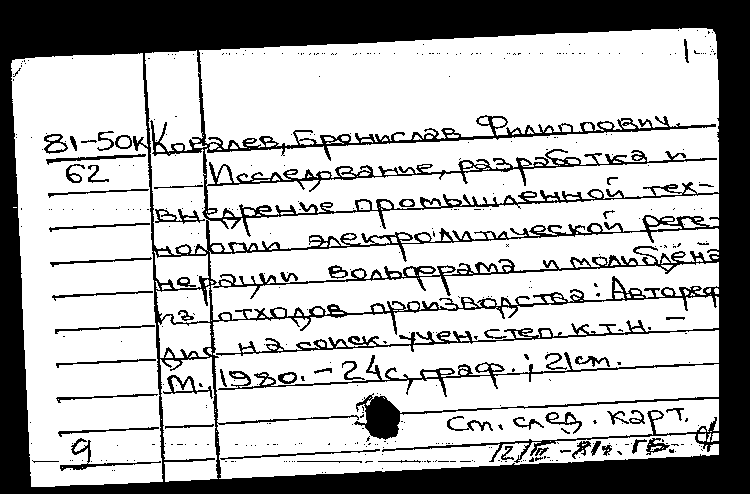 1
81-50к Ковалев, Бронислав Филиппович.
62 Исследование, разработка и
внедрение промышленной тех-
нологии электролитической реге-
нерации вольфрама и молибдена
из отходов производства: Автореф
дис на соиск. учен. степ. к.т.н. –
М., 1980. – 24с., граф.; 21см.
См. след. карт.
9 12/III-81г. ГВ.